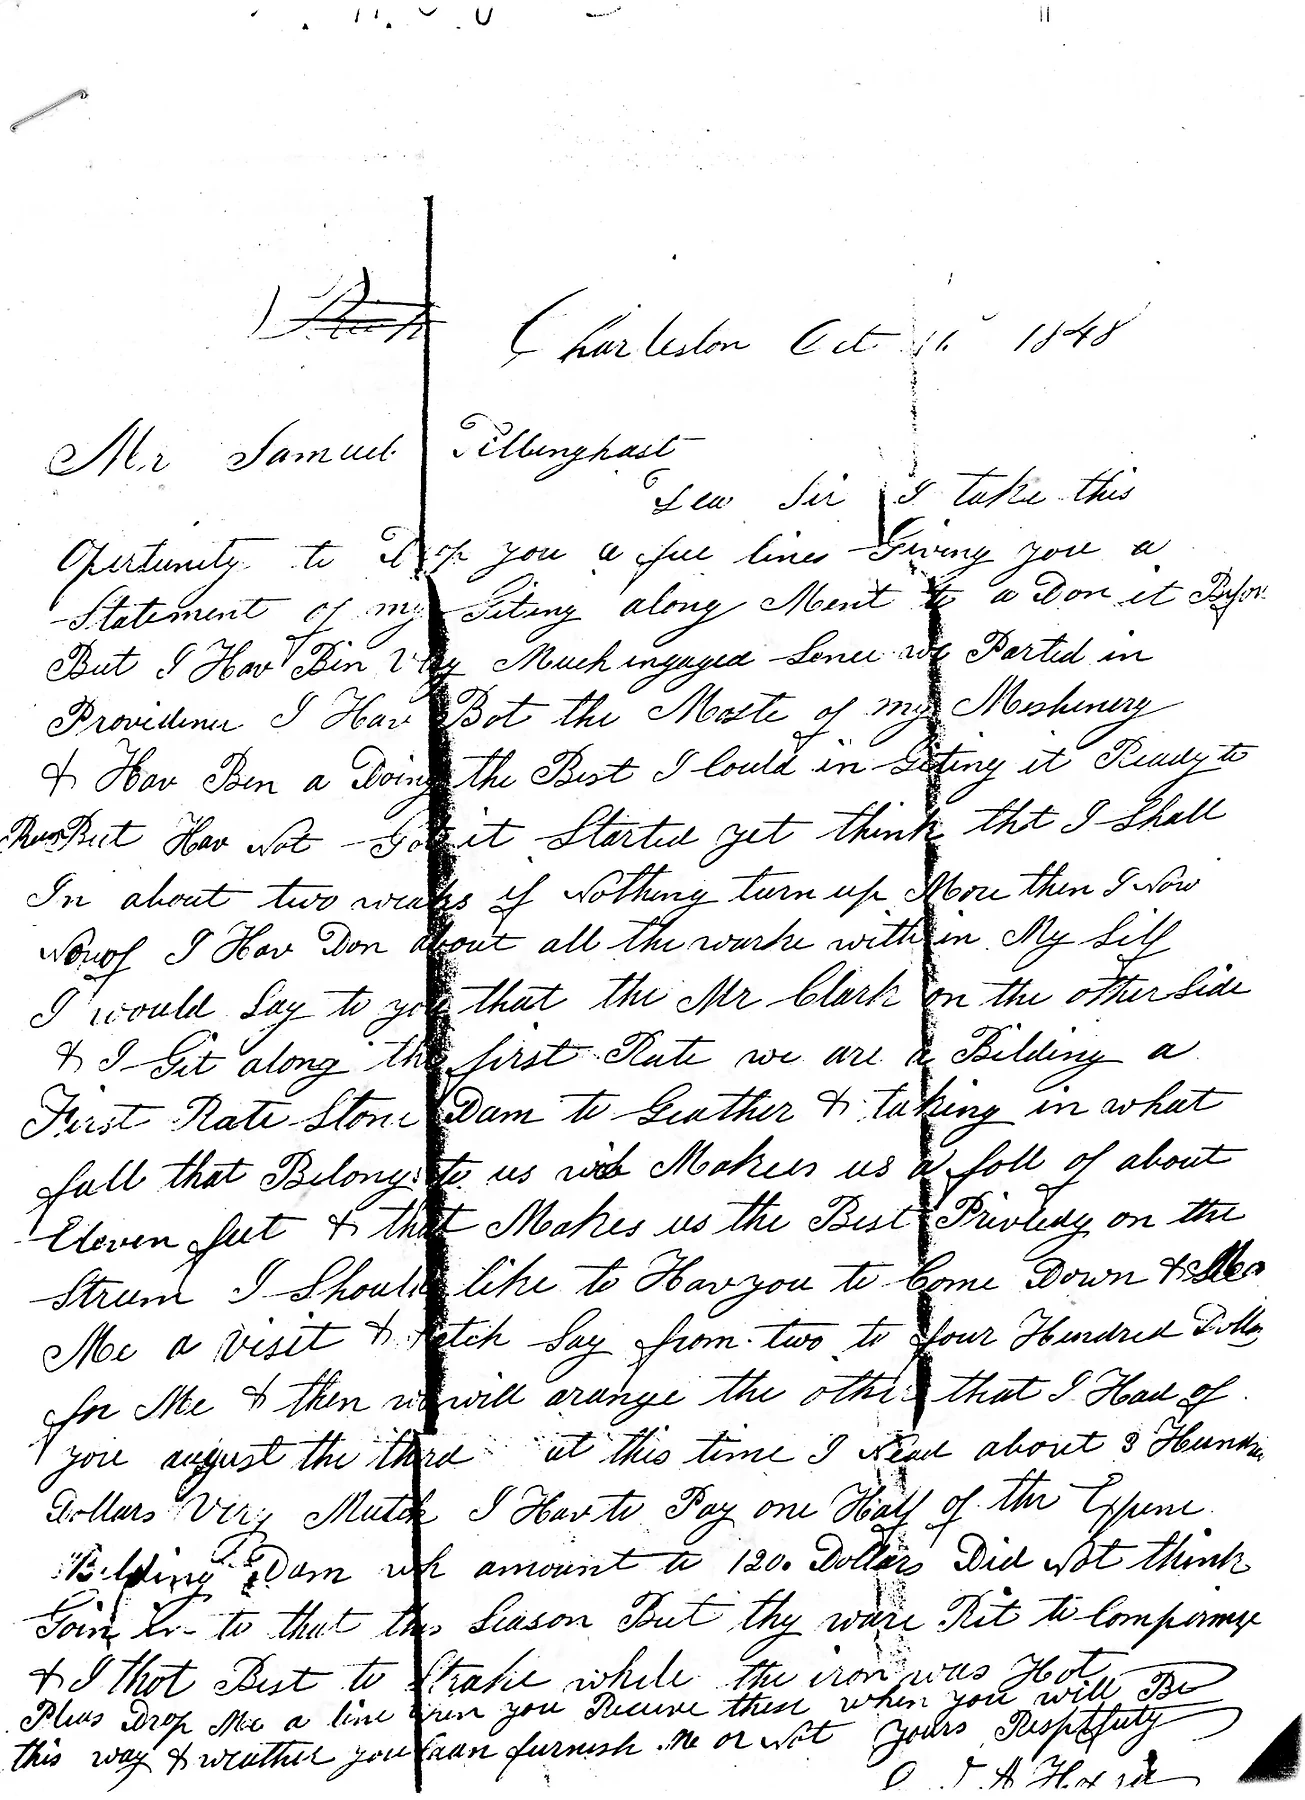 Charleston Oct 16 1848
Mr Samuel Tillinghast
Dea Sir I take this
Opertunity to Drop you a fue lines Giving you a
Statement of my Giting along Ment to a Don it Befor
But I Hav Bin Very Much ingaged Sence we Parted in
Providence I Hav Bot the Moste of my Meshinery
& Hav Ben a Doing the Best I Could in Giting it Ready to
Run But Hav Not Got it Started yet think tht I Shall
In about two weaks if Nothing turn up More then I Now
Now of I Hav Don about all the warke with in My Self
I would Say to you that the Mr Clark on the other Side
& I Git along the first Rate we are a Bilding a
First Rate Stone Dam to Geather & taking in what
fall that Belongs to us Makees us a foll of about
Eleven feet & that Makes us the Best Privledg on the
Streem I Should like to Hav you to Come Down &
Me a visit & fetch Say from two to four Hundred Dollas
for Me & then we will arange the other that I Had of
you august the third at this time I Nead about 3 Hundred
Dollars Very Mutch I Hav to Pay one Half of the Expene
Bilding Dam wh amount to 120. Dollars Did Not think
Goin in to that this Season But thy ware Rit to
& I thot Best to Strake while the iron was Hot
Pleas Drop Me a line wen you Receive these when you will Be
this way & weather you Caan furnish Me or Not Yours Respffuty